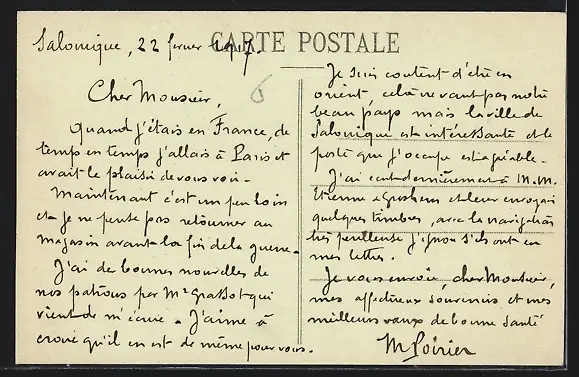 CARTE POSTALE
Salonique, 22 février 1917.
Cher Monsieur,
Quand j'étais en France, de
temps en temps j'allais à Paris et
avait le plaisir de vous voir.
Maintenant c'est un peu loin
et je ne pense pas retourner au
magasin avant la fin de la guerre.
J'ai de bonnes nouvelles de
nos patrons par Mr Grassot qui
vient de m'écrire. J'aime à
croire qu'il en est de même pour vous.
Je suis content d'être en
orient, cela ne vaut pas notre
beau pays mais la ville de
Salonique est intéressante et le
poste que j'occupe est agréable.
J'ai écrit dernièrement à M.M.
Etienne et leur envoyai
quelques timbres, avec la navigation
très périlleuse j'ignore s'ils ont eu
mes lettres.
Je vous envoie, cher Monsieur,
mes affectueux souvenirs et mes
meilleurs vœux de bonne santé
M Poirier